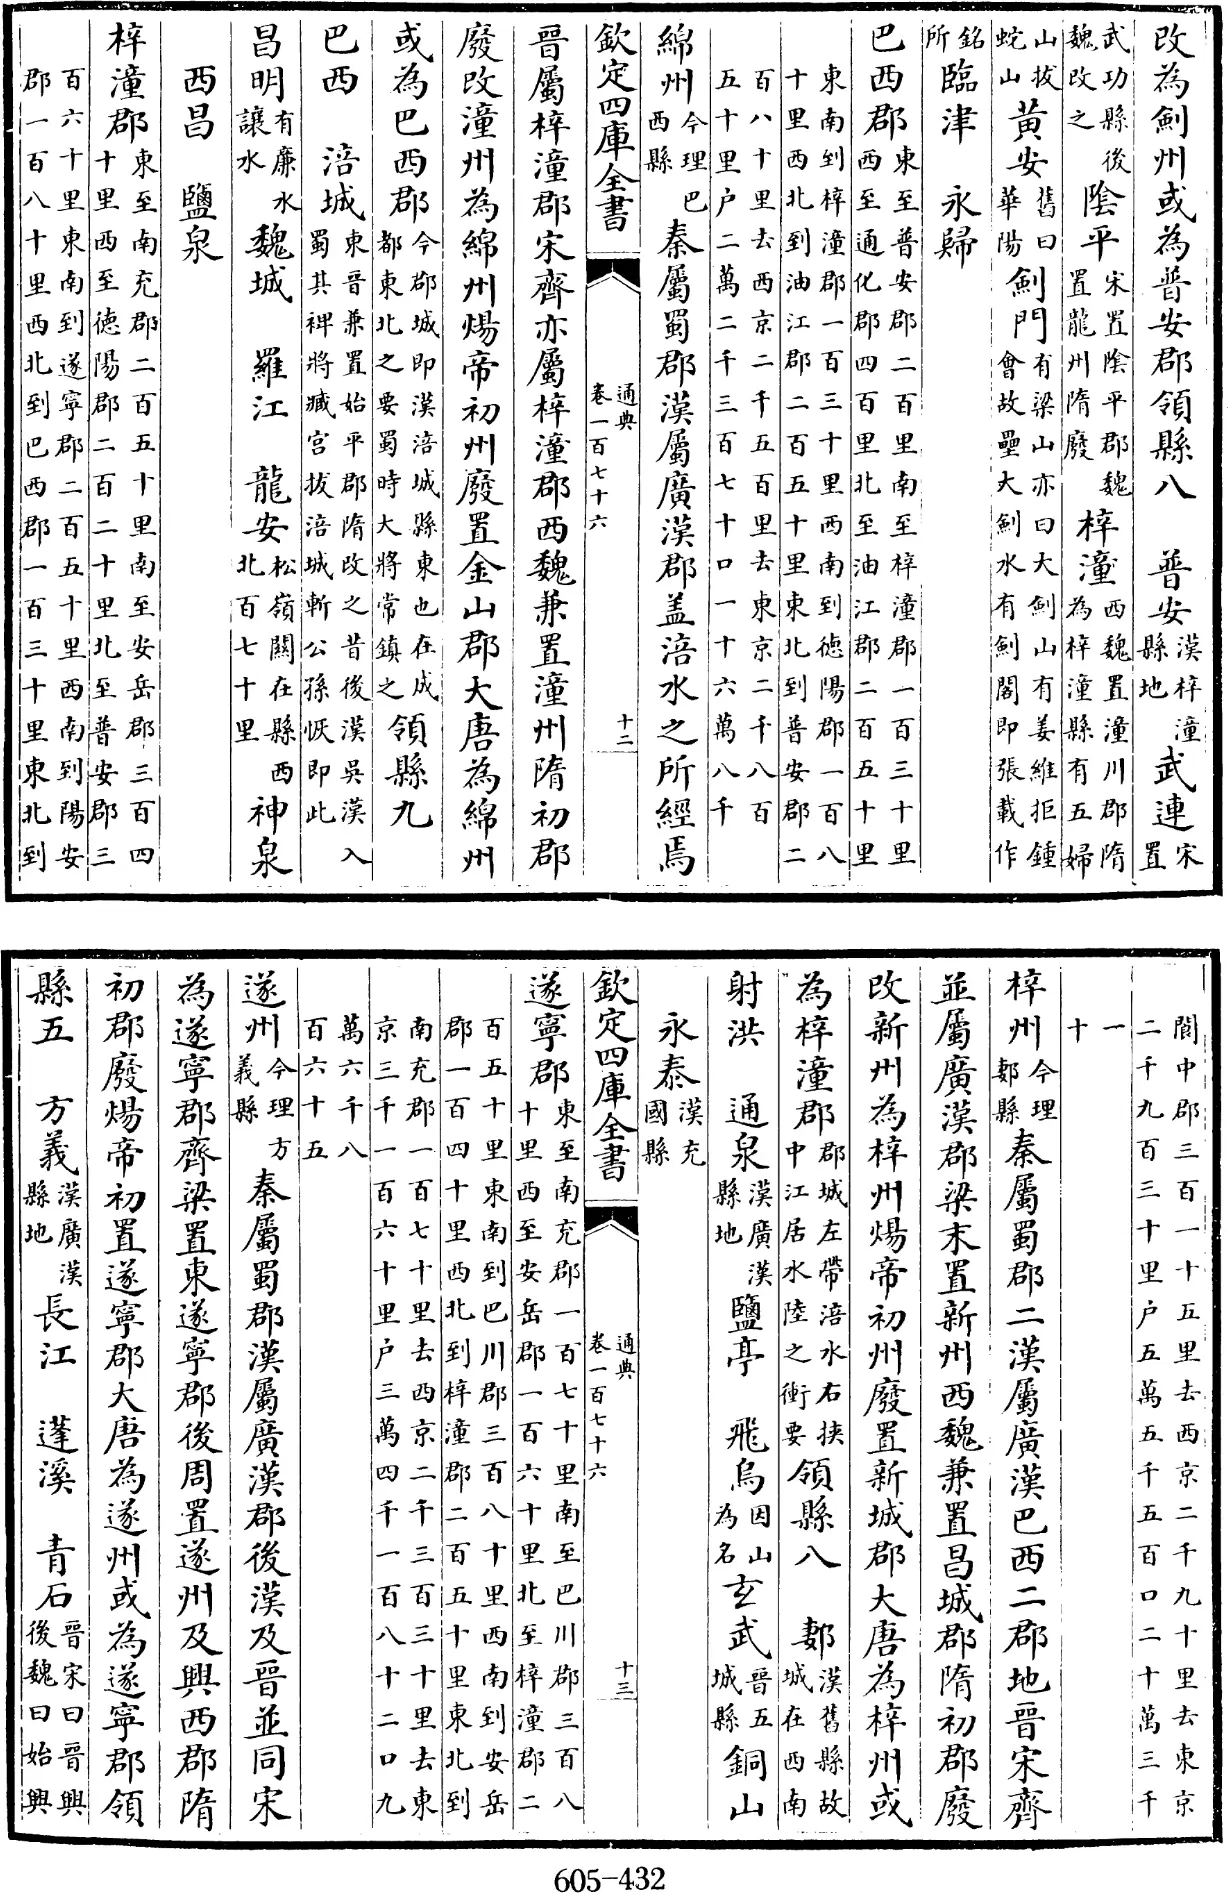 改為劍州或為普安郡領縣八　普安漢梓潼縣地武連宋置
武功縣後魏改之陰平宋置陰平郡魏置龍州隋廢梓潼西魏置潼川郡隋為梓潼縣有五婦
山拔蛇山黃安舊曰華陽劍門有梁山亦曰大劍山有姜維拒鍾會故壘大劍水有劍閣即張載作
銘所臨津　永歸
巴西郡東至普安郡二百里南至梓潼郡一百三十里西至通化郡四百里北至油江郡二百五十里
東南到梓潼郡一百三十里西南到德陽郡一百八十里西北到油江郡二百五十里東北到普安郡二
百八十里去西京二千五百里去東京二千八百五十里户二萬二千三百七十口一十六萬八千
綿州今理巴西縣秦屬蜀郡漢屬廣漢郡盖涪水之所經焉
欽定四庫全書　通典卷一百七十六　十二
晉屬梓潼郡宋齊亦屬梓潼郡西魏兼置潼州隋初郡
廢改潼州為綿州煬帝初州廢置金山郡大唐為綿州
或為巴西郡今郡城即漢涪城縣東也在成都東北之要蜀時大將常鎮之領縣九
巴西　涪城東晉兼置始平郡隋改之昔後漢吳漢入蜀其裨將臧宮拔涪城斬公孫恢即此
昌明有廉水讓水魏城　羅江　龍安松嶺關在縣西北百七十里神泉
西昌　鹽泉
梓潼郡東至南充郡二百五十里南至安岳郡三百四十里西至德陽郡二百二十里北至普安郡三
百六十里東南到遂寧郡二百五十里西南到陽安郡一百八十里西北到巴西郡一百三十里東北到
閬中郡三百一十五里去西京二千九十里去東京二千九百三十里户五萬五千五百口二十萬三千
一十
梓州今理郪縣秦屬蜀郡二漢屬廣漢巴西二郡地晉宋齊
並屬廣漢郡梁末置新州西魏兼置昌城郡隋初郡廢
改新州為梓州煬帝初州廢置新城郡大唐為梓州或
為梓潼郡郡城左帶涪水右挾中江居水陸之衝要領縣八　郪漢舊縣故城在西南
射洪　通泉漢廣漢縣地鹽亭　飛烏因山為名玄武晉五城縣銅山
永泰漢充國縣
欽定四庫全書　通典卷一百七十六　十三
遂寧郡東至南充郡一百七十里南至巴川郡三百八十里西至安岳郡一百六十里北至梓潼郡二
百五十里東南到巴川郡三百八十里西南到安岳郡一百四十里西北到梓潼郡二百五十里東北到
南充郡一百七十里去西京二千三百三十里去東京三千一百六十里户三萬四千一百八十二口九
萬六千八百六十五
遂州今理方義縣秦屬蜀郡漢屬廣漢郡後漢及晉並同宋
為遂寧郡齊梁置東遂寧郡後周置遂州及興西郡隋
初郡廢煬帝初置遂寧郡大唐為遂州或為遂寧郡領
縣五　方義漢廣漢縣地長江　蓬溪　青石晉宋曰晉興後魏曰始興
605-432